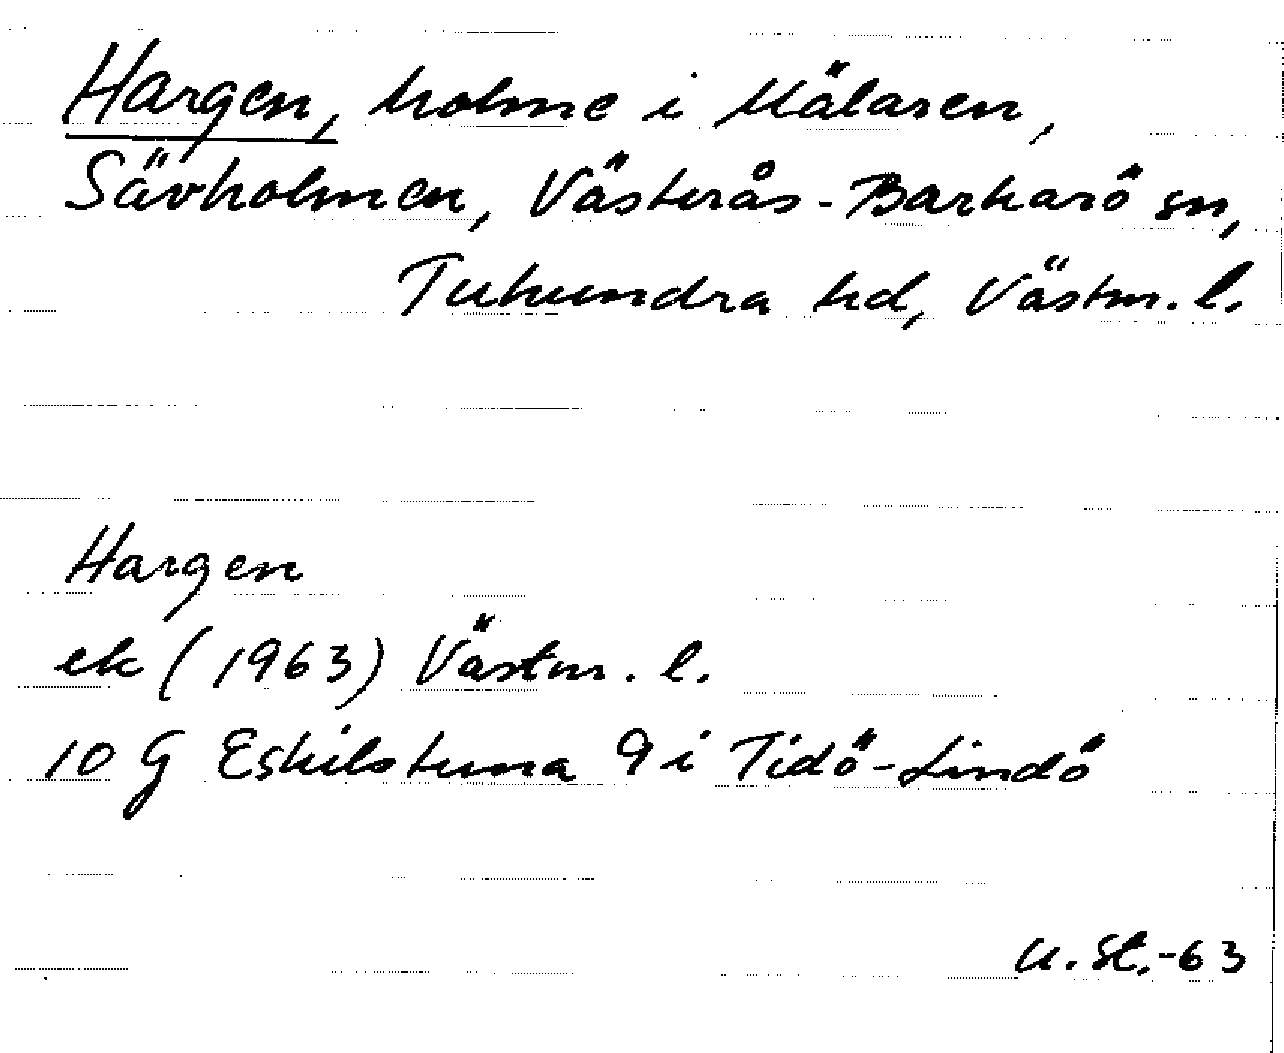 Hargen, holme i Mälaren,
Sävholmen, Västerås-Barkarö sn,
Tuhundra hd, Västm. l.
Hargen
ek (1963) Västm. l.
10 G Eskilstuna 9 i Tidö-Lindö
U. St.-63